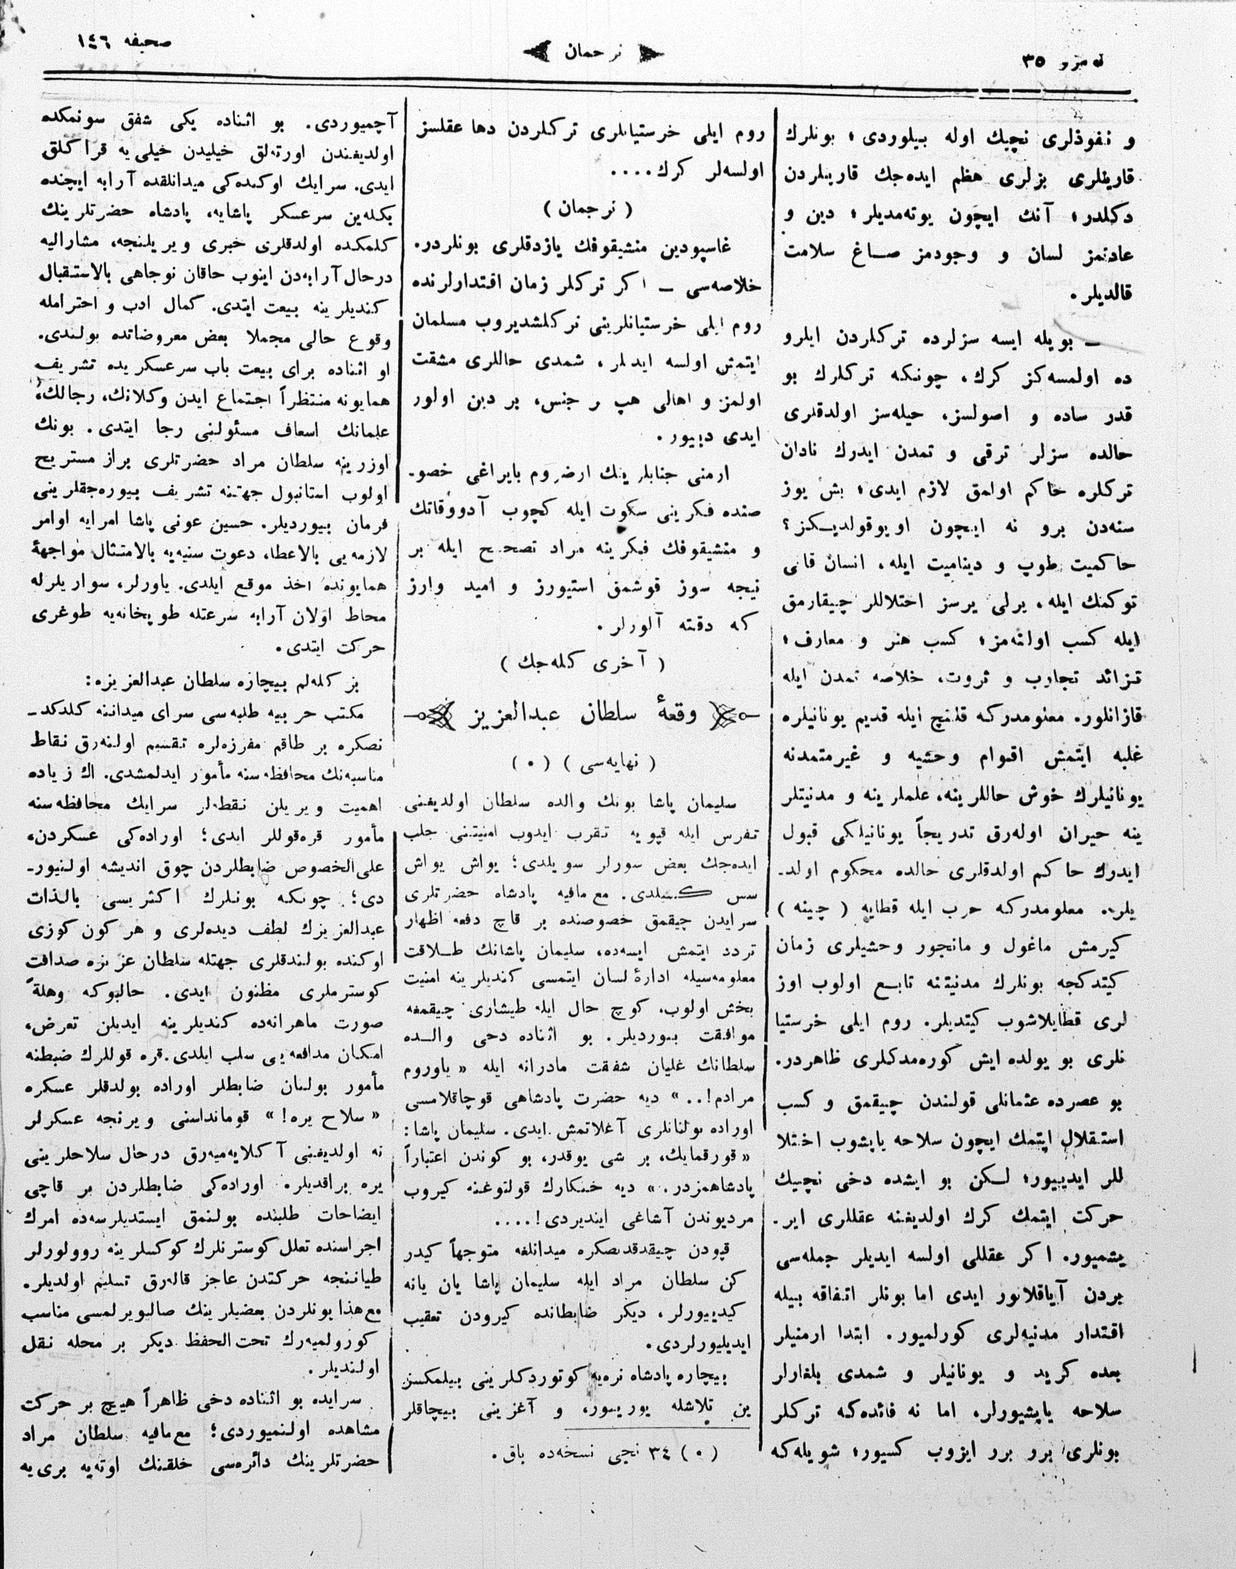 نومرو ٣٥
ترجمان
صحيفه ١٤٦
و نفوذلرى نچيك اوله بيلوردى؛ بونلرك
قارينلرى بزلرى هظم ايده‌جك قارينلردن
دكلدر؛ آنك ايچون يوته‌مديلر؛ دين و
عادتمز لسان و وجودمز صاغ سلامت
قالديلر.
ــ بويله ايسه سزلرده تركلردن ايلرو
ده اولمسه‌كز كرك، چونكه تركلرك بو
قدر ساده و اصولسز، حيله‌سز اولدقلرى
حالده سزلر ترقى و تمدن ايدرك نادان
تركلره حاكم اولمق لازم ايدى؛ بش يوز
سنه‌دن برو نه ايچون اويوقولديكز؟
حاكميت طوپ و ديناميت ايله، انسان قانى
توكمك ايله، يرلى يرسز اختلاللر چيقارمق
ايله كسب اولنه‌مز؛ كسب هنر و معارف؛
تزائد تجارب و ثروت، خلاصه تمدن ايله
قازانلور. معلومدركه قلنچ ايله قديم يونانيلره
غلبه ايتمش اقوام وحشيه و غيرمتمدنه
يونانيلرك خوش حاللرينه، علملرينه و مدنيتلر
ينه حيران اوله‌رق تدريجاً يونانيلكى قبول
ايدرك حاكم اولدقلرى حالده محكوم اولد۔
يلر. معلومدركه حرب ايله قطايه (چينه)
كيرمش ماغول و مانجور وحشيلرى زمان
كيتدكجه بونلرك مدنيتنه تابع اولوب اوز
لرى قطايلاشوب كيتديلر. روم ايلى خرستيا
نلرى بو يولده ايش كوره‌مدكلرى ظاهردر.
بو عصرده عثمانلى قولندن چيقمق و كسب
استقلال ايتمك ايچون سلاحه ياپشوب اختلا
للر ايديبيور؛ لكن بو ايشده دخى نچيك
حركت ايتمك كرك اولديغنه عقللرى اير.
يشميور. اكر عقللى اولسه ايديلر جمله‌سى
بردن آياقلانور ايدى اما بونلر اتفاقه بيله
اقتدار مدنيه‌لرى كورلميور. ابتدا ارمنيلر
بعده كريد و يونانيلر و شمدى بلغارلر
سلاحه ياپشيورلر، اما نه فائده‌كه تركلر
بونلرى برو برر ايزوب كسيور؛ شويله‌كه
روم ايلى خرستيانلرى تركلردن دها عقلسز
اولسه‌لر كرك....
(ترجمان)
غاسپودين منشيقوفك يازدقلرى بونلردر.
خلاصه‌سى ــ اكر تركلر زمان اقتدارلرنده
روم ايلى خرستيانلرينى تركلشديروب مسلمان
ايتمش اولسه ايديلر، شمدى حاللرى مشقت
اولمز و اهالى هپ بر جنس، بر دين اولور
ايدى دييور.
ارمنى جنابلرينك ارضروم بايراغى خصو۔
صنده فكرينى سكوت ايله كچوب آدووقاتك
و منشيقوفك فكرينه مراد تصحيح ايله بر
نيجه سوز قوشمق استيورز و اميد وارز
كه دقته آلورلر.
(آخرى كله‌جك)
وقعهٔ سلطان عبدالعزيز
(نهايه‌سى) (٠)
سليمان پاشا بونك والده سلطان اولديغنى
تفرس ايله قپويه تقرب ايدوب امنيتنى جلب
ايده‌جك بعض سوزلر سويلدى؛ يواش يواش
سس كسيلدى. مع‌مافيه پادشاه حضرتلرى
سرايدن چيقمق خصوصنده بر قاچ دفعه اظهار
تردد ايتمش ايسه‌ده، سليمان پاشانك طلاقت
معلومه‌سيله ادارهٔ لسان ايتمسى كنديلرينه امنيت
بخش اولوب، كوچ حال ايله طيشارى چيقمغه
موافقت بيورديلر. بو اثناده دخى والده
سلطانك غليان شفقت مادرانه ايله «ياوروم
مرادم!..» ديه حضرت پادشاهى قوچاقلامسى
اوراده بولنانلرى آغلاتمش ايدى. سليمان پاشا:
«قورقمايك، بر شى يوقدر، بو كوندن اعتباراً
پادشاهمزدر.» ديه خنكارك قولتوغنه كيروب
مرديوندن آشاغى اينديردى!....
قپودن چيقدقدنصكره ميدانلغه متوجهاً كيدر
كن سلطان مراد ايله سليمان پاشا يان يانه
كيدييورلر، ديكر ضابطانده كيرودن تعقيب
ايديليورلردى.
بيچاره پادشاه نره‌يه كوتوردكلرينى بيلمكسز
ين تلاشله يوريور، و آغزينى بيچاقلر
(٠) ٣٤ نجى نسخه‌ده باق.
آچميوردى. بو اثناده يكى شفق سونمكده
اولديغندن اورته‌لق خيليدن خيلى‌يه قراكلق
ايدى. سرايك اوكنده‌كى ميدانلقده آرابه ايچنده
بكله‌ين سرعسكر پاشايه، پادشاه حضرتلرينك
كلمكده اولدقلرى خبرى ويريلنجه، مشاراليه
درحال آرابه‌دن اينوب حاقان نوجاهى بالاستقبال
كنديلرينه بيعت ايتدى. كمال ادب و احترامله
وقوع حالى مجملا بعض معروضاتده بولندى.
او اثناده براى بيعت باب سرعسكريده تشريف
همايونه منتظراً اجتماع ايدن وكلانك، رجالك،
علمانك اسعاف مسئولنى رجا ايتدى. بونك
اوزرينه سلطان مراد حضرتلرى براز مستريح
اولوب استانبول جهتنه تشريف بيوره‌جقلرينى
فرمان بيورديلر. حسين عونى پاشا امرايه اوامر
لازمه‌يى بالاعطا، دعوت سنيه‌يه بالامتثال مواجههٔ
همايونده اخذ موقع ايلدى. ياورلر، سواريلرله
محاط اولان آرابه سرعتله طوپخانه‌يه طوغرى
حركت ايتدى.
بز كله‌لم بيچاره سلطان عبدالعزيزه:
مكتب حربيه طلبه‌سى سراى ميداننه كلدكد۔
نصكره بر طاقم مفرزه‌لره تقسيم اولنه‌رق نقاط
مناسبه‌نك محافظه‌سنه مأمور ايدلمشدى. اك زياده
اهميت ويريلن نقطه‌لر سرايك محافظه‌سنه
مأمور قره‌قوللر ايدى؛ اوراده‌كى عسكردن،
على‌الخصوص ضابطلردن چوق انديشه اولنيور۔
دى؛ چونكه بونلرك اكثريسى بالذات
عبدالعزيزك لطف ديده‌لرى و هر كون كوزى
اوكنده بولندقلرى جهتله سلطان عزيزه صداقت
كوسترملرى مظنون ايدى. حالبوكه وهلةً
صورت ماهرانه‌ده كنديلرينه ايديلن تعرض،
امكان مدافعه‌يى سلب ايلدى. قره قوللرك ضبطنه
مأمور بولنان ضابطلر اوراده بولدقلر عسكره
«سلاح يره!» قومانداسنى ويرنجه عسكرلر
نه اولديغنى آكلايه‌ميه‌رق درحال سلاحلرينى
يره براقديلر. اوراده‌كى ضابطلردن بر قاچى
ايضاحات طلبنده بولنمق ايستديلرسه‌ده امرك
اجراسنده تعلل كوسترنلرك كوكسلرينه روولورلر
طيانينجه حركتدن عاجز قاله‌رق تسليم اولديلر.
مع‌هذا بونلردن بعضيلرينك صاليويرلمسى مناسب
كورولميه‌رك تحت‌الحفظ ديكر بر محله نقل
اولنديلر.
سرايده بو اثناده دخى ظاهراً هيچ بر حركت
مشاهده اولنميوردى؛ مع‌مافيه سلطان مراد
حضرتلرينك دائره‌سى خلقنك اوته‌يه برى‌يه